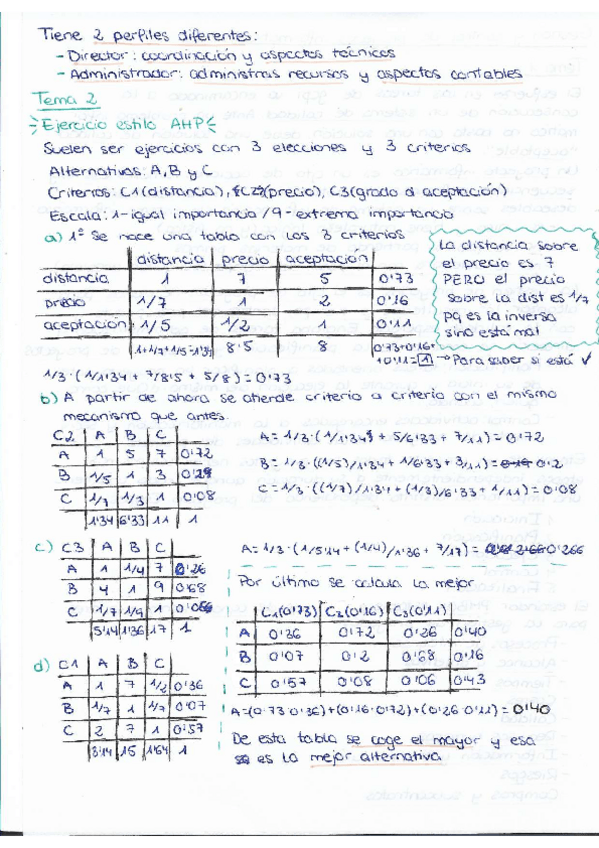 Tiene 2 perfiles diferentes:
- Director: coordinación y aspectos técnicos
- Administrador: administras recursos y aspectos contables
Tema 2
Ejercicio estilo AHP
Suelen ser ejercicios con 3 elecciones y 3 criterios
Alternativas: A, B y C
Criterios: C1(distancia), C2(precio), C3(grado d aceptación)
Escala: 1-igual importancia / 9-extrema importancia
a) 1º Se hace una tabla con los 3 criterios
distancia precio aceptación
distancia 1 7 5 0'73
precio 1/7 1 2 0'16
aceptación 1/5 1/2 1 0'11
1+1/7+1/5=1'34 8'5 8 0'73+0'16+
+0'11=1 → Para saber si está ✓
La distancia sobre
el precio es 7
PERO el precio
sobre la dist es 1/7
pq es la inversa
sino está mal
1/3·(1/1'34 + 7/8'5 + 5/8) = 0'73
b) A partir de ahora se atiende criterio a criterio con el mismo
mecanismo que antes.
C2 A B C
A 1 5 7 0'72
B 1/5 1 3 0'2
C 1/7 1/3 1 0'08
1'34 6'33 11 1
A = 1/3·(1/1'34 + 5/6'33 + 7/11) = 0'72
B = 1/3·((1/5)/1'34 + 1/6'33 + 3/11) = 0'2
C = 1/3·((1/7)/1'34 + (1/3)/6'33 + 1/11) = 0'08
c) C3 A B C
A 1 1/4 7 0'26
B 4 1 9 0'68
C 1/7 1/9 1 0'06
5'14 1'36 17 1
A = 1/3·(1/5'14 + (1/4)/1'36 + 7/17) = 0'266
d) C1 A B C
A 1 7 1/2 0'36
B 1/7 1 1/7 0'07
C 2 7 1 0'57
3'14 15 1'64 1
Por último se calcula la mejor
C1(0'73) C2(0'16) C3(0'11)
A 0'36 0'72 0'26 0'40
B 0'07 0'2 0'68 0'16
C 0'57 0'08 0'06 0'43
A=(0'73·0'36)+(0'16·0'72)+(0'26·0'11) = 0'40
De esta tabla se coge el mayor y esa
es la mejor alternativa